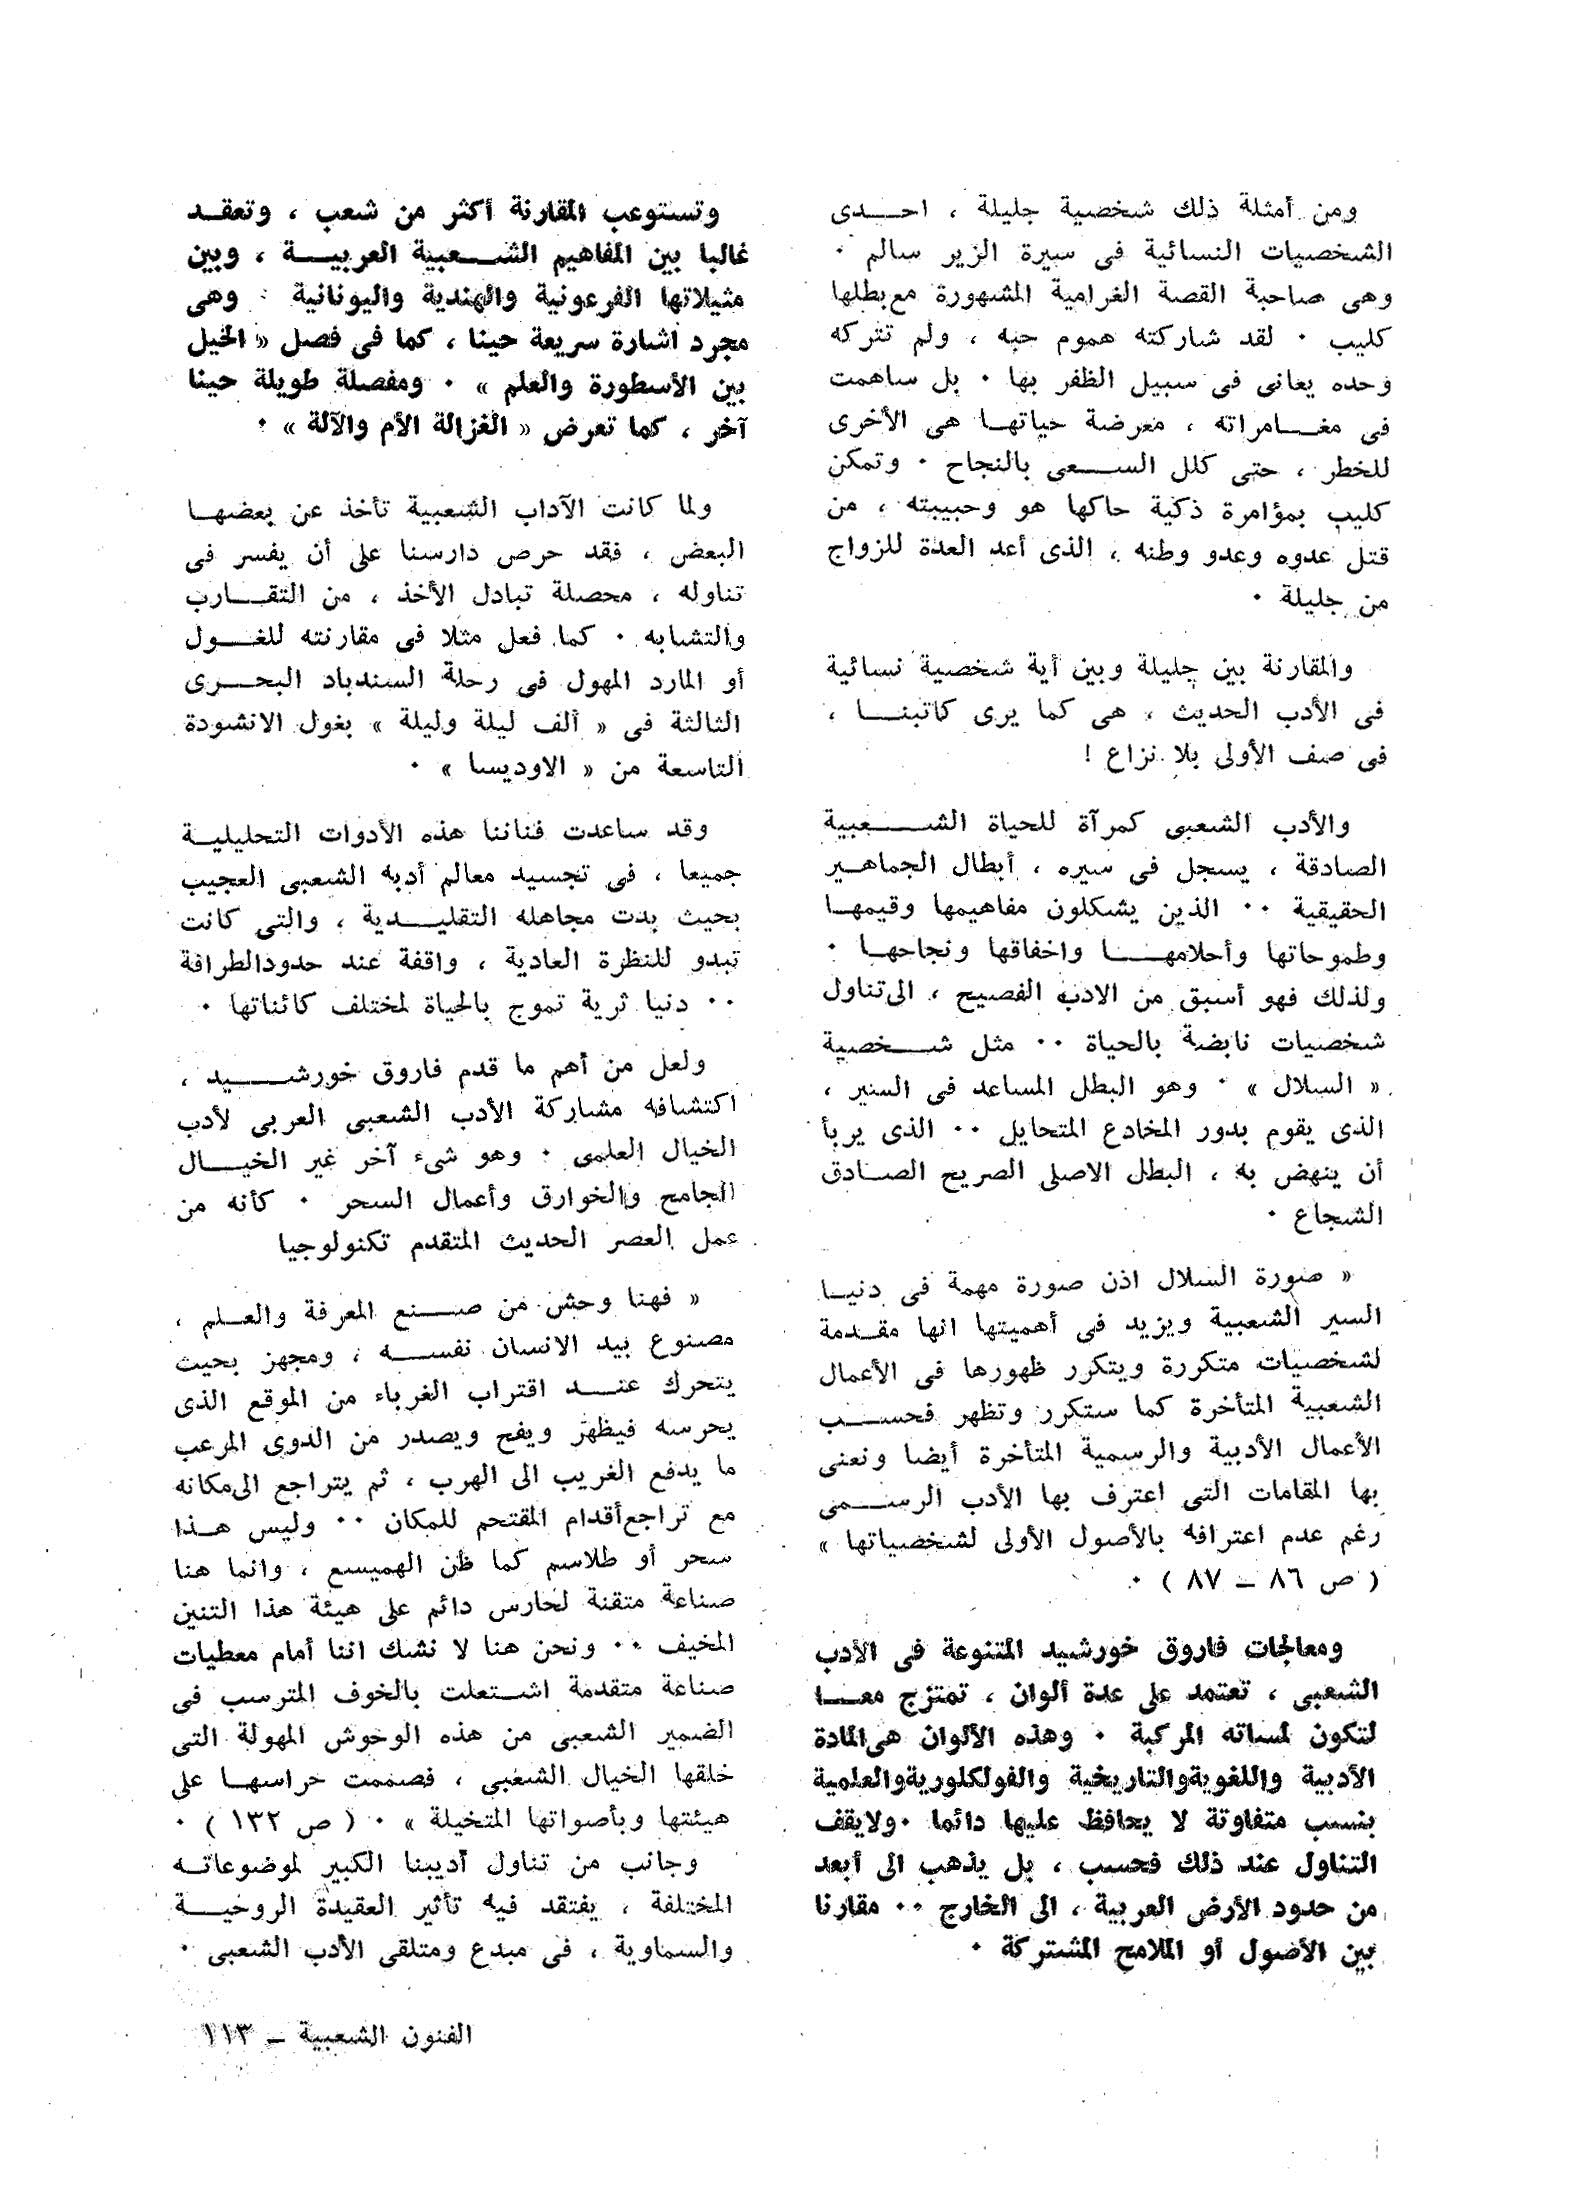 ومن أمثلة ذلك شخصية جليلة ، احدى
الشخصيات النسائية فى سيرة الزير سالم ·
وهى صاحبة القصة الغرامية المشهورة مع بطلها
كليب · لقد شاركته هموم حبه ، ولم تتركه
وحده يعانى فى سبيل الظفر بها · بل ساهمت
فى مغامراته ، معرضة حياتها هى الأخرى
للخطر ، حتى كلل السعى بالنجاح · وتمكن
كليب بمؤامرة ذكية حاكها هو وحبيبته ، من
قتل عدوه وعدو وطنه ، الذى أعد العدة للزواج
من جليلة ·
والمقارنة بين جليلة وبين أية شخصية نسائية
فى الأدب الحديث ، هى كما يرى كاتبنا ،
فى صف الأولى بلا نزاع !
والأدب الشعبى كمرآة للحياة الشعبية
الصادقة ، يسجل فى سيره ، أبطال الجماهير
الحقيقية ·· الذين يشكلون مفاهيمها وقيمها
وطموحاتها وأحلامها واخفاقها ونجاحها ·
ولذلك فهو أسبق من الادب الفصيح ، الى تناول
شخصيات نابضة بالحياة ·· مثل شخصية
« السلال » · وهو البطل المساعد فى السير ،
الذى يقوم بدور المخادع المتحايل ·· الذى يربأ
أن ينهض به ، البطل الاصلى الصريح الصادق
الشجاع ·
« صورة السلال اذن صورة مهمة فى دنيا
السير الشعبية ويزيد فى أهميتها انها مقدمة
لشخصيات متكررة ويتكرر ظهورها فى الأعمال
الشعبية المتأخرة كما ستكرر وتظهر فحسب
الأعمال الأدبية والرسمية المتأخرة أيضا ونعنى
بها المقامات التى اعترف بها الأدب الرسمى
رغم عدم اعترافه بالأصول الأولى لشخصياتها »
( ص ٨٦ – ٨٧ ) ·
ومعالجات فاروق خورشيد المتنوعة فى الأدب
الشعبى ، تعتمد على عدة ألوان ، تمتزج معا
لتكون لمساته المركبة · وهذه الألوان هى المادة
الأدبية واللغوية والتاريخية والفولكلورية والعلمية
بنسب متفاوتة لا يحافظ عليها دائما · ولا يقف
التناول عند ذلك فحسب ، بل يذهب الى أبعد
من حدود الأرض العربية ، الى الخارج ·· مقارنا
بين الأصول أو الملامح المشتركة ·
وتستوعب المقارنة أكثر من شعب ، وتعقد
غالبا بين المفاهيم الشعبية العربية ، وبين
مثيلاتها الفرعونية والهندية واليونانية · وهى
مجرد اشارة سريعة حينا ، كما فى فصل « الخيل
بين الأسطورة والعلم » · ومفصلة طويلة حينا
آخر ، كما تعرض « الغزالة الأم والآلة » ·
ولما كانت الآداب الشعبية تأخذ عن بعضها
البعض ، فقد حرص دارسنا على أن يفسر فى
تناوله ، محصلة تبادل الأخذ ، من التقارب
والتشابه · كما فعل مثلا فى مقارنته للغول
أو المارد المهول فى رحلة السندباد البحرى
الثالثة فى « ألف ليلة وليلة » بغول الانشودة
التاسعة من « الاوديسا » ·
وقد ساعدت فناننا هذه الأدوات التحليلية
جميعا ، فى تجسيد معالم أدبه الشعبى العجيب
بحيث بدت مجاهله التقليدية ، والتى كانت
تبدو للنظرة العادية ، واقفة عند حدود الطرافة
·· دنيا ثرية تموج بالحياة لمختلف كائناتها ·
ولعل من أهم ما قدم فاروق خورشيد ،
اكتشافه مشاركة الأدب الشعبى العربى لأدب
الخيال العلمى · وهو شىء آخر غير الخيال
الجامح والخوارق وأعمال السحر · كأنه من
عمل العصر الحديث المتقدم تكنولوجيا
« فهنا وحش من صنع المعرفة والعلم ،
مصنوع بيد الانسان نفسه ، ومجهز بحيث
يتحرك عند اقتراب الغرباء من الموقع الذى
يحرسه فيظهر ويفح ويصدر من الدوى المرعب
ما يدفع الغريب الى الهرب ، ثم يتراجع الى مكانه
مع تراجع أقدام المقتحم للمكان ·· وليس هذا
سحر أو طلاسم كما ظن الهميسع ، وانما هنا
صناعة متقنة لحارس دائم على هيئة هذا التنين
المخيف ·· ونحن هنا لا نشك اننا أمام معطيات
صناعة متقدمة اشتعلت بالخوف المترسب فى
الضمير الشعبى من هذه الوحوش المهولة التى
خلقها الخيال الشعبى ، فصممت حراسها على
هيئتها وبأصواتها المتخيلة » · ( ص ١٣٢ ) ·
وجانب من تناول أديبنا الكبير لموضوعاته
المختلفة ، يفتقد فيه تأثير العقيدة الروحية
والسماوية ، فى مبدع ومتلقى الأدب الشعبى ·
الفنون الشعبية – ١١٣